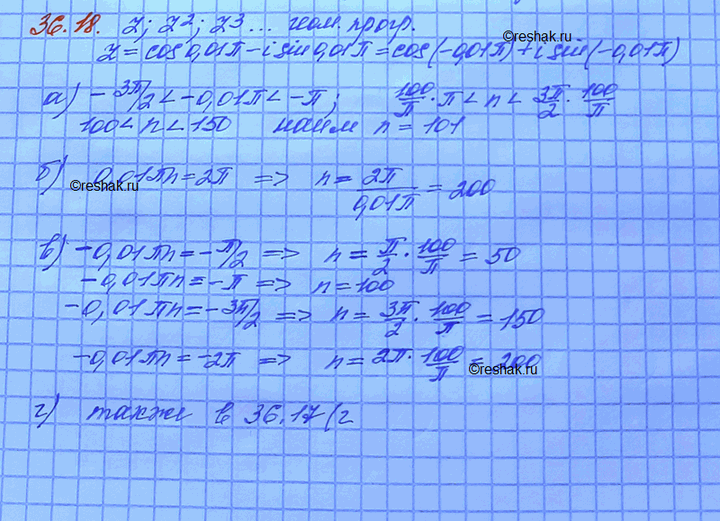 36.18. z; z²; z³ ... геом. прогр.
reshak.ru
z = cos 0,01π - i sin 0,01π = cos(-0,01π) + i sin(-0,01π)
а) -3π/2 < -0,01π < -π; 100/π · π < n < 3π/2 · 100/π
100 < n < 150 наим n = 101
б) 0,01πn = 2π => n = 2π/0,01π = 200
©reshak.ru
в) -0,01πn = -π/2 => n = π/2 · 100/π = 50
-0,01πn = -π => n = 100
-0,01πn = -3π/2 => n = 3π/2 · 100/π = 150
-0,01πn = -2π => n = 2π · 100/π = 200
©reshak.ru
г) также в 36.17(г